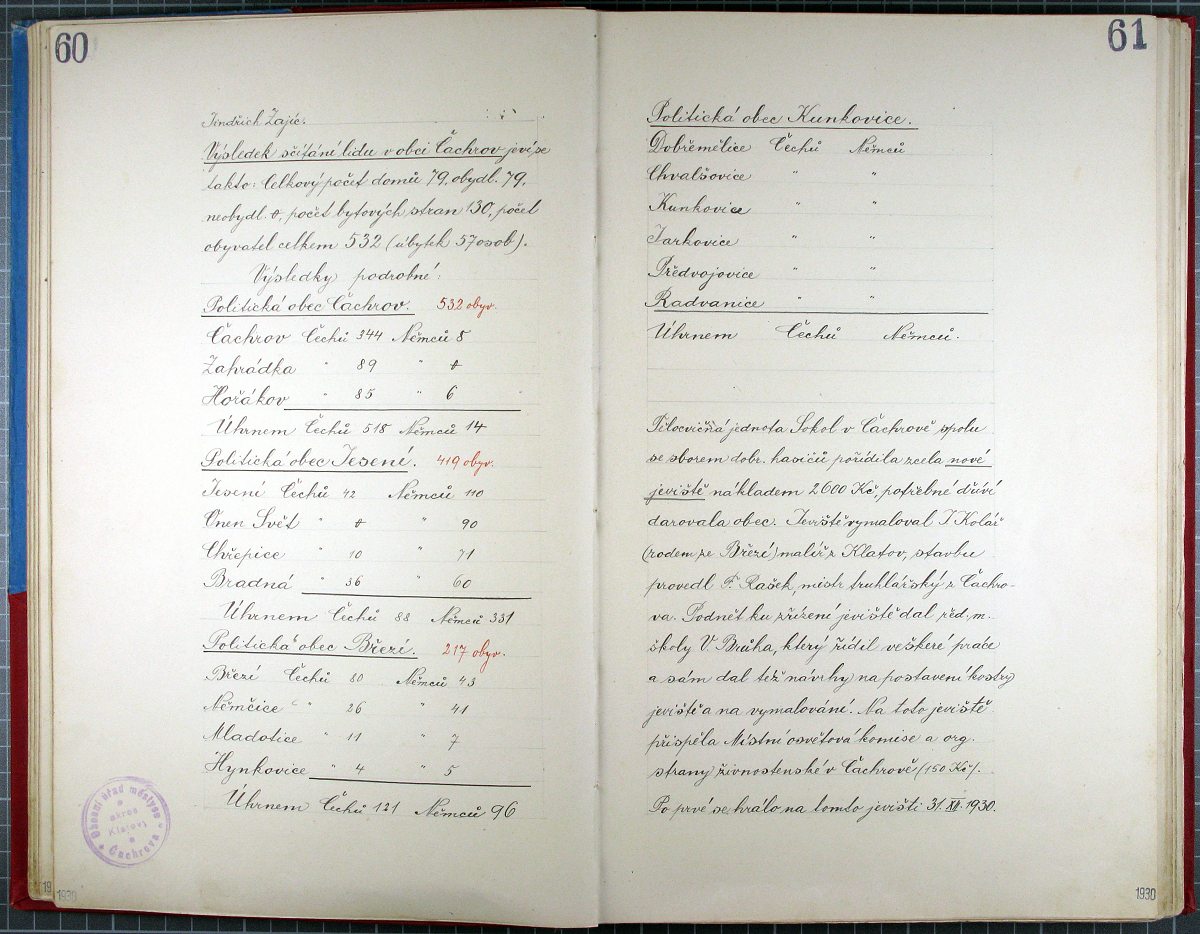 60
Jindřich Zajíc.
Výsledek sčítání lidu v obci Čachrov jeví se
takto: Celkový počet domů 79, obydl. 79,
neobydl. 0, počet bytových stran 130, počet
obyvatel celkem 532 (úbytek 57 osob).
Výsledky podrobné:
Politická obec Čachrov. 532 obyv.
Čachrov Čechů 344 Němců 8
Zahrádka " 89 " 0
Hořákov " 85 " 6
Úhrnem Čechů 518 Němců 14
Politická obec Jesení. 419 obyv.
Jesení Čechů 42 Němců 110
Onen Svět " 0 " 90
Chřepice " 10 " 71
Bradná " 36 " 60
Úhrnem Čechů 88 Němců 331
Politická obec Březí. 217 obyv.
Březí Čechů 80 Němců 43
Němčice " 26 " 41
Mladotice " 11 " 7
Hynkovice " 4 " 5
Úhrnem Čechů 121 Němců 96
Obecní úřad městyse
okres
Klatovy
Čachrova
19
1930
61
Politická obec Kunkovice.
Dobřemělice Čechů Němců
Chvalšovice " "
Kunkovice " "
Jarkovice " "
Předvojovice " "
Radvanice " "
Úhrnem Čechů Němců.
Tělocvičná jednota Sokol v Čachrově spolu
se sborem dobr. hasičů pořídila zcela nové
jeviště nákladem 2600 Kč, potřebné dříví
darovala obec. Jeviště vymaloval J. Kolář
(rodem ze Březí) malíř z Klatov, stavbu
provedl F. Rašek, mistr truhlářský z Čachro-
va. Podnět ku zřízení jeviště dal řed. m.
školy V. Brůha, který řídil veškeré práce
a sám dal též návrhy na postavení kostry
jeviště a na vymalování. Na toto jeviště
přispěla Místní osvětová komise a org.
strany živnostenské v Čachrově (150 Kč).
Po prvé se hrálo na tomto jevišti 31. XII. 1930.
1930